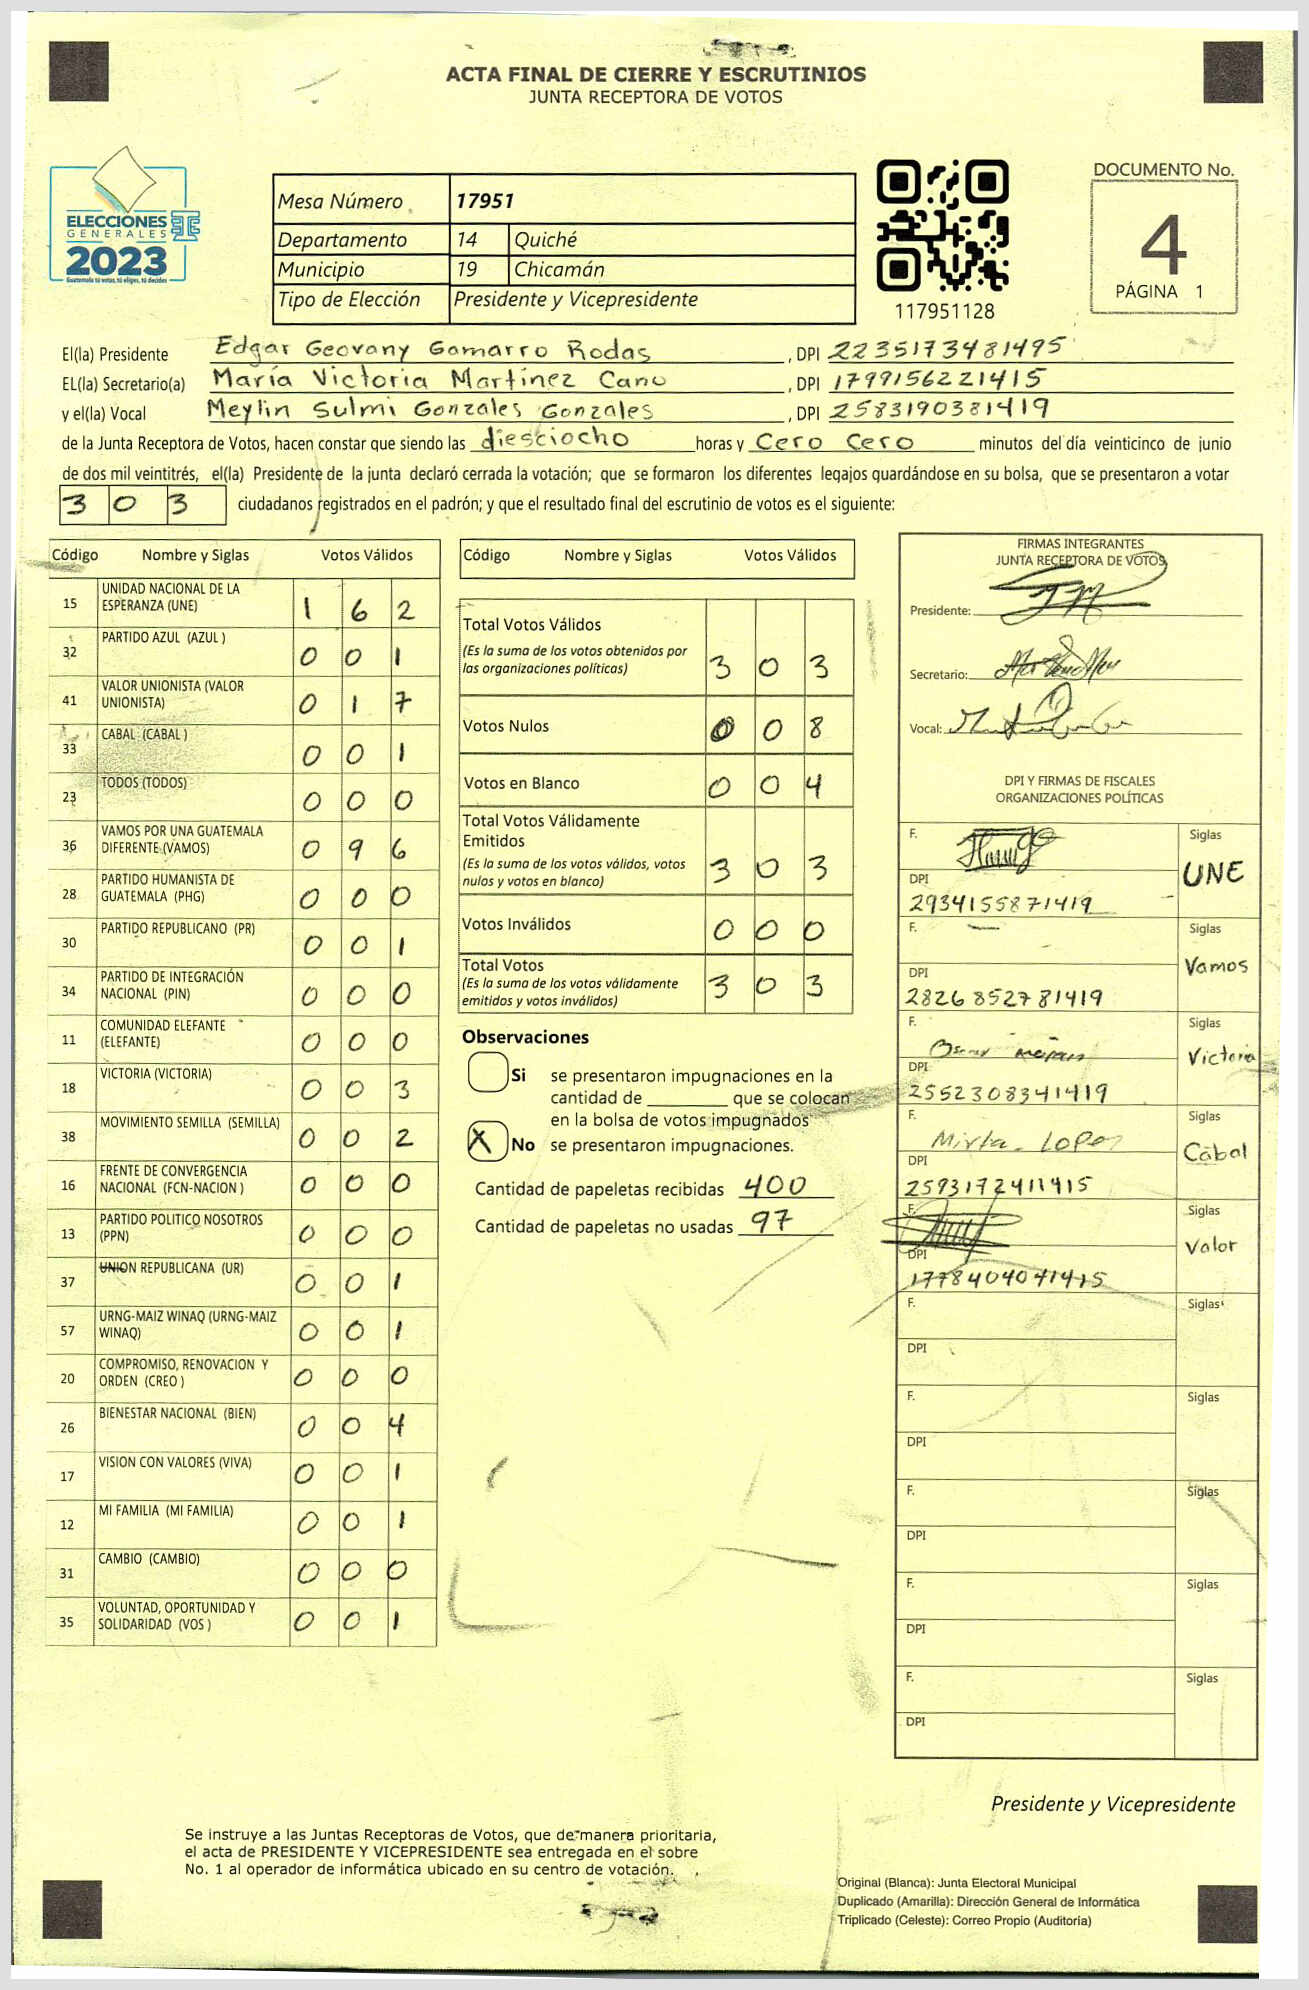 ACTA FINAL DE CIERRE Y ESCRUTINIOS
JUNTA RECEPTORA DE VOTOS
ELECCIONES
GENERALES
2023
Guatemala tú votas, tú eliges, tú decides
Mesa Número 17951
Departamento 14 Quiché
Municipio 19 Chicamán
Tipo de Elección Presidente y Vicepresidente
117951128
DOCUMENTO No.
4
PÁGINA 1
El(la) Presidente Edgar Geovany Gamarro Rodas, DPI 2235173481495
EL(la) Secretario(a) María Victoria Martínez Cano, DPI 1799156221415
y el(la) Vocal Meylin Sulmi Gonzales Gonzales, DPI 2583190381419
de la Junta Receptora de Votos, hacen constar que siendo las diesciocho horas y Cero Cero minutos del día veinticinco de junio
de dos mil veintitrés, el(la) Presidente de la junta declaró cerrada la votación; que se formaron los diferentes legajos guardándose en su bolsa, que se presentaron a votar
303 ciudadanos registrados en el padrón; y que el resultado final del escrutinio de votos es el siguiente:
Código Nombre y Siglas Votos Válidos
15 UNIDAD NACIONAL DE LA ESPERANZA (UNE) 1 6 2
32 PARTIDO AZUL (AZUL ) 0 0 1
41 VALOR UNIONISTA (VALOR UNIONISTA) 0 1 7
33 CABAL (CABAL ) 0 0 1
23 TODOS (TODOS) 0 0 0
36 VAMOS POR UNA GUATEMALA DIFERENTE (VAMOS) 0 9 6
28 PARTIDO HUMANISTA DE GUATEMALA (PHG) 0 0 0
30 PARTIDO REPUBLICANO (PR) 0 0 1
34 PARTIDO DE INTEGRACIÓN NACIONAL (PIN) 0 0 0
11 COMUNIDAD ELEFANTE (ELEFANTE) 0 0 0
18 VICTORIA (VICTORIA) 0 0 3
38 MOVIMIENTO SEMILLA (SEMILLA) 0 0 2
16 FRENTE DE CONVERGENCIA NACIONAL (FCN-NACION ) 0 0 0
13 PARTIDO POLITICO NOSOTROS (PPN) 0 0 0
37 UNION REPUBLICANA (UR) 0 0 1
57 URNG-MAIZ WINAQ (URNG-MAIZ WINAQ) 0 0 1
20 COMPROMISO, RENOVACION Y ORDEN (CREO ) 0 0 0
26 BIENESTAR NACIONAL (BIEN) 0 0 4
17 VISION CON VALORES (VIVA) 0 0 1
12 MI FAMILIA (MI FAMILIA) 0 0 1
31 CAMBIO (CAMBIO) 0 0 0
35 VOLUNTAD, OPORTUNIDAD Y SOLIDARIDAD (VOS ) 0 0 1
Código Nombre y Siglas Votos Válidos
Total Votos Válidos 3 0 3
(Es la suma de los votos obtenidos por
las organizaciones políticas)
Votos Nulos 0 0 8
Votos en Blanco 0 0 4
Total Votos Válidamente
Emitidos 3 0 3
(Es la suma de los votos válidos, votos
nulos y votos en blanco)
Votos Inválidos 0 0 0
Total Votos 3 0 3
(Es la suma de los votos válidamente
emitidos y votos inválidos)
Observaciones
Si se presentaron impugnaciones en la
cantidad de ________ que se colocan
en la bolsa de votos impugnados
X No se presentaron impugnaciones.
Cantidad de papeletas recibidas 400
Cantidad de papeletas no usadas 97
FIRMAS INTEGRANTES
JUNTA RECEPTORA DE VOTOS
Presidente:
Secretario:
Vocal:
DPI Y FIRMAS DE FISCALES
ORGANIZACIONES POLÍTICAS
F. Siglas
UNE
DPI
2934155871419
F. Siglas
Vamos
DPI
2826852781419
F. Siglas
Oscar
Victoria
DPI
2552308341419
F. Siglas
Mirta. LOPez
Cabal
DPI
2593172411415
F. Siglas
Valor
DPI
1778404041415
F. Siglas
DPI
F. Siglas
DPI
F. Siglas
DPI
F. Siglas
DPI
F. Siglas
DPI
Presidente y Vicepresidente
Se instruye a las Juntas Receptoras de Votos, que de manera prioritaria,
el acta de PRESIDENTE Y VICEPRESIDENTE sea entregada en el sobre
No. 1 al operador de informática ubicado en su centro de votación.
Original (Blanca): Junta Electoral Municipal
Duplicado (Amarilla): Dirección General de Informática
Triplicado (Celeste): Correo Propio (Auditoría)